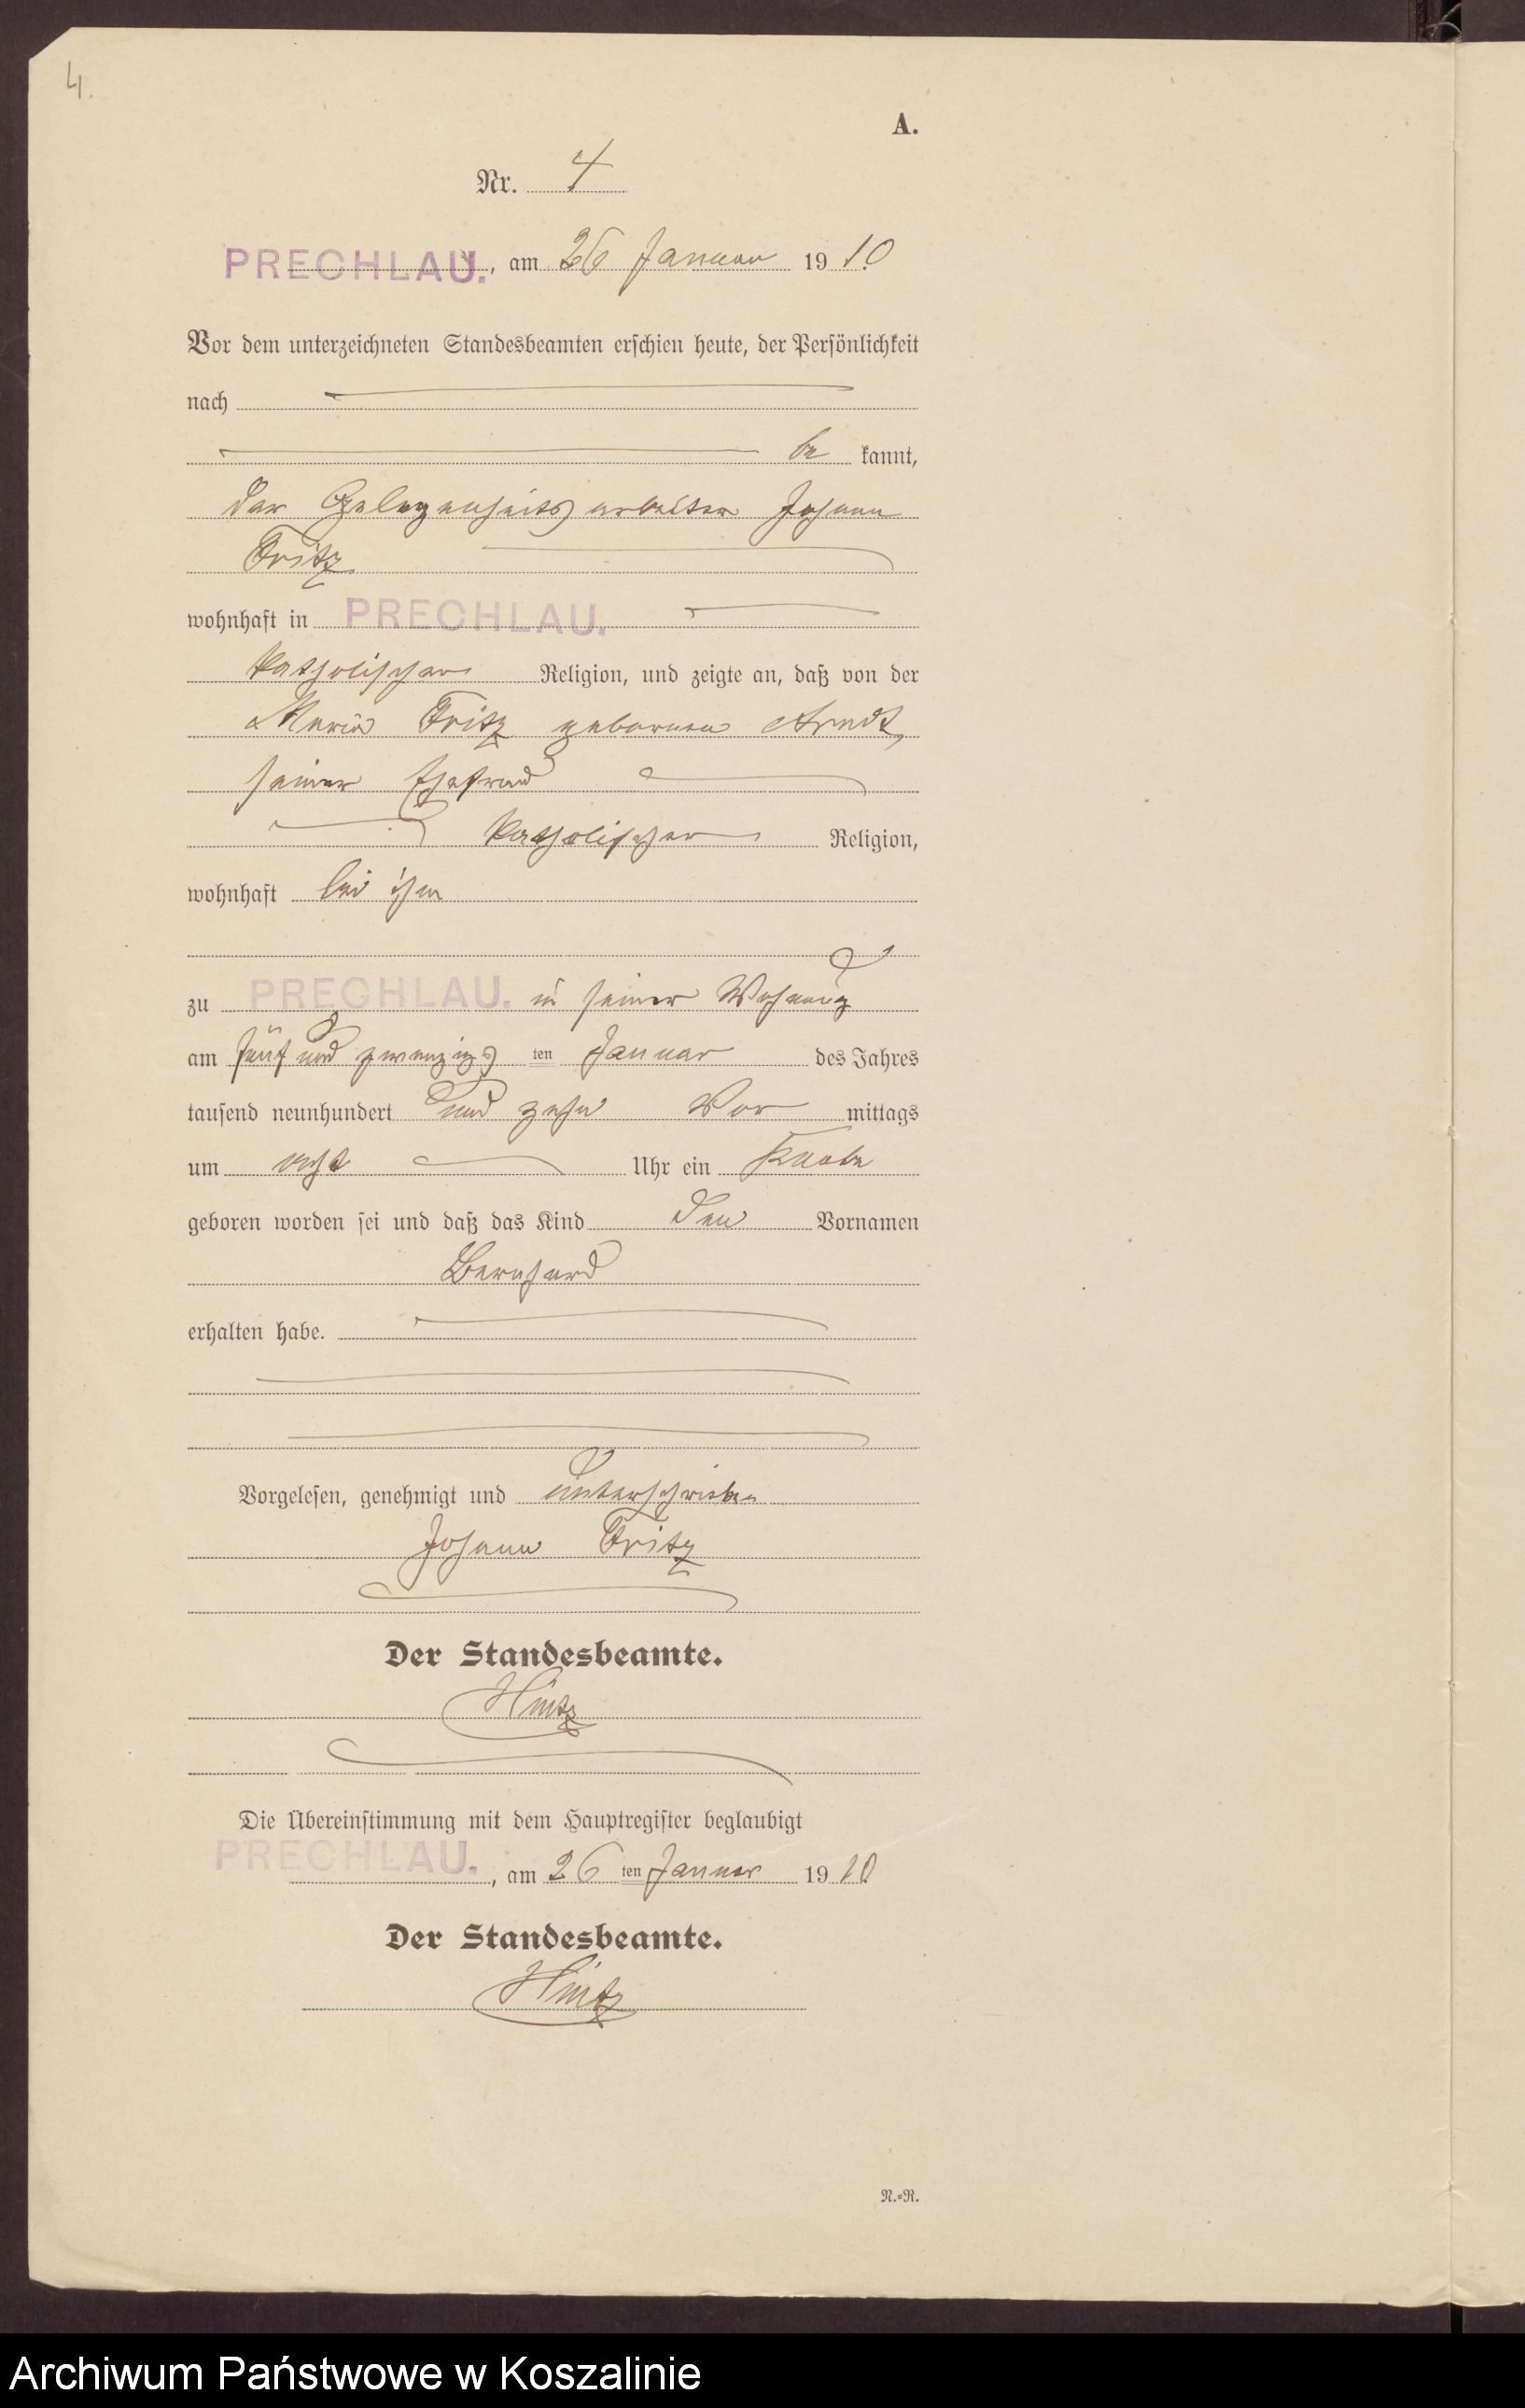 4.
A.
Nr. 4
PRECHLAU., am 26 Januar 1910
Vor dem unterzeichneten Standesbeamten erschien heute, der Persönlichkeit
nach
be kannt,
der Gelegenheitsarbeiter Johann
Fritz
wohnhaft in PRECHLAU.
katholischer Religion, und zeigte an, daß von der
Maria Fritz geborenen Arndt,
seiner Ehefrau
katholischer Religion,
wohnhaft bei ihm
zu PRECHLAU. in seiner Wohnung
am fünf und zwanzigsten Januar des Jahres
tausend neunhundert und zehn Vor mittags
um acht Uhr ein Knabe
geboren worden sei und daß das Kind den Vornamen
Bernhard
erhalten habe.
Vorgelesen, genehmigt und unterschrieben
Johann Fritz
Der Standesbeamte.
Hintz
Die Übereinstimmung mit dem Hauptregister beglaubigt
PRECHLAU., am 26 ten Januar 1910
Der Standesbeamte.
Hintz
N.=R.
Archiwum Państwowe w Koszalinie